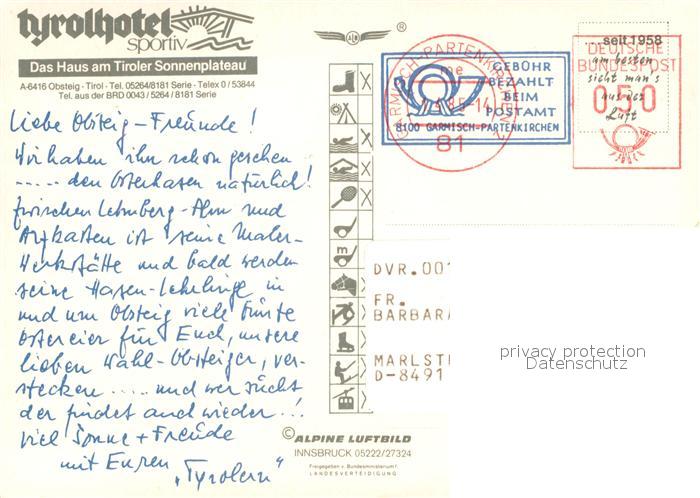 tyrolhotel
sportiv
Das Haus am Tiroler Sonnenplateau
A-6416 Obsteig · Tirol · Tel. 05264/8181 Serie · Telex 0 / 53844
Tel. aus der BRD 0043 / 5264 / 8181 Serie
Liebe Obsteig-Freunde!
Wir haben ihn schon gesehen
..... den Osterhasen natürlich!
Zwischen Lehnberg-Alm und
Arzkasten ist seine Maler-
Werkstätte und bald werden
seine Hasen-Lehrlinge in
und um Obsteig viele bunte
Ostereier für Euch, unsere
lieben Wahl-Obsteiger, ver-
stecken ..... und wer sucht
der findet auch wieder..!
Viel Sonne + Freude
mit Euren "Tyrolern"
®
GARMISCH-PARTENKIRCHEN
81
GEBÜHR
BEZAHLT
BEIM
POSTAMT
8100 GARMISCH-PARTENKIRCHEN
...seit 1958
am besten
sicht man's
aus der
Luft
DEUTSCHE
BUNDESPOST
050
m
DVR.001
FR.
BARBARA
MARLST
D-8491
privacy protection
Datenschutz
© ALPINE LUFTBILD
INNSBRUCK 05222/27324
Freigegeben v. Bundesministerium f.
LANDESVERTEIDIGUNG